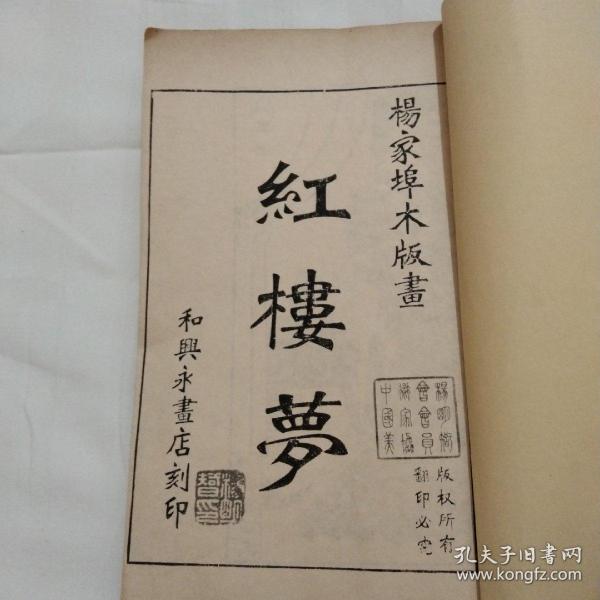 楊家埠木版畫
紅樓夢
和興永畫店刻印
中國美
術家協
會會員
版权所有
翻印必究
孔夫子旧书网
www.kongfz.com